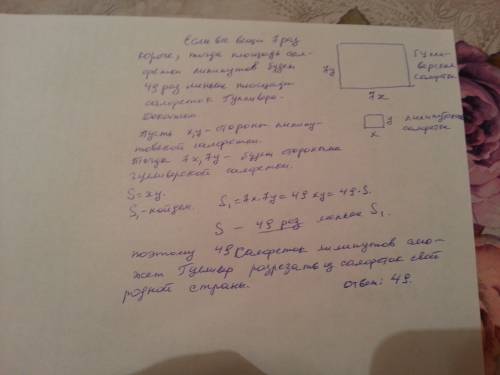 Если все вещи 7 раз
короче, тогда площадь сал-
фетки лилипутов будет
49 раз меньше площади
салфеток Гулливера.
Пусть x, y - стороны лилипу-
товской салфетки.
Тогда 7x, 7y - будут сторонами
гулливерской салфетки.
S = xy.
S₁ - найдем. S₁ = 7x·7y = 49 xy = 49·S.
S - 49 раз меньше S₁.
поэтому 49 салфеток лилипутов смо-
жет Гулливер разрезать из салфеток своей
родной страны.
Ответ: 49.
7y
7x
Гулли-
верская
салфетка
y лилипутская
салфетка
x